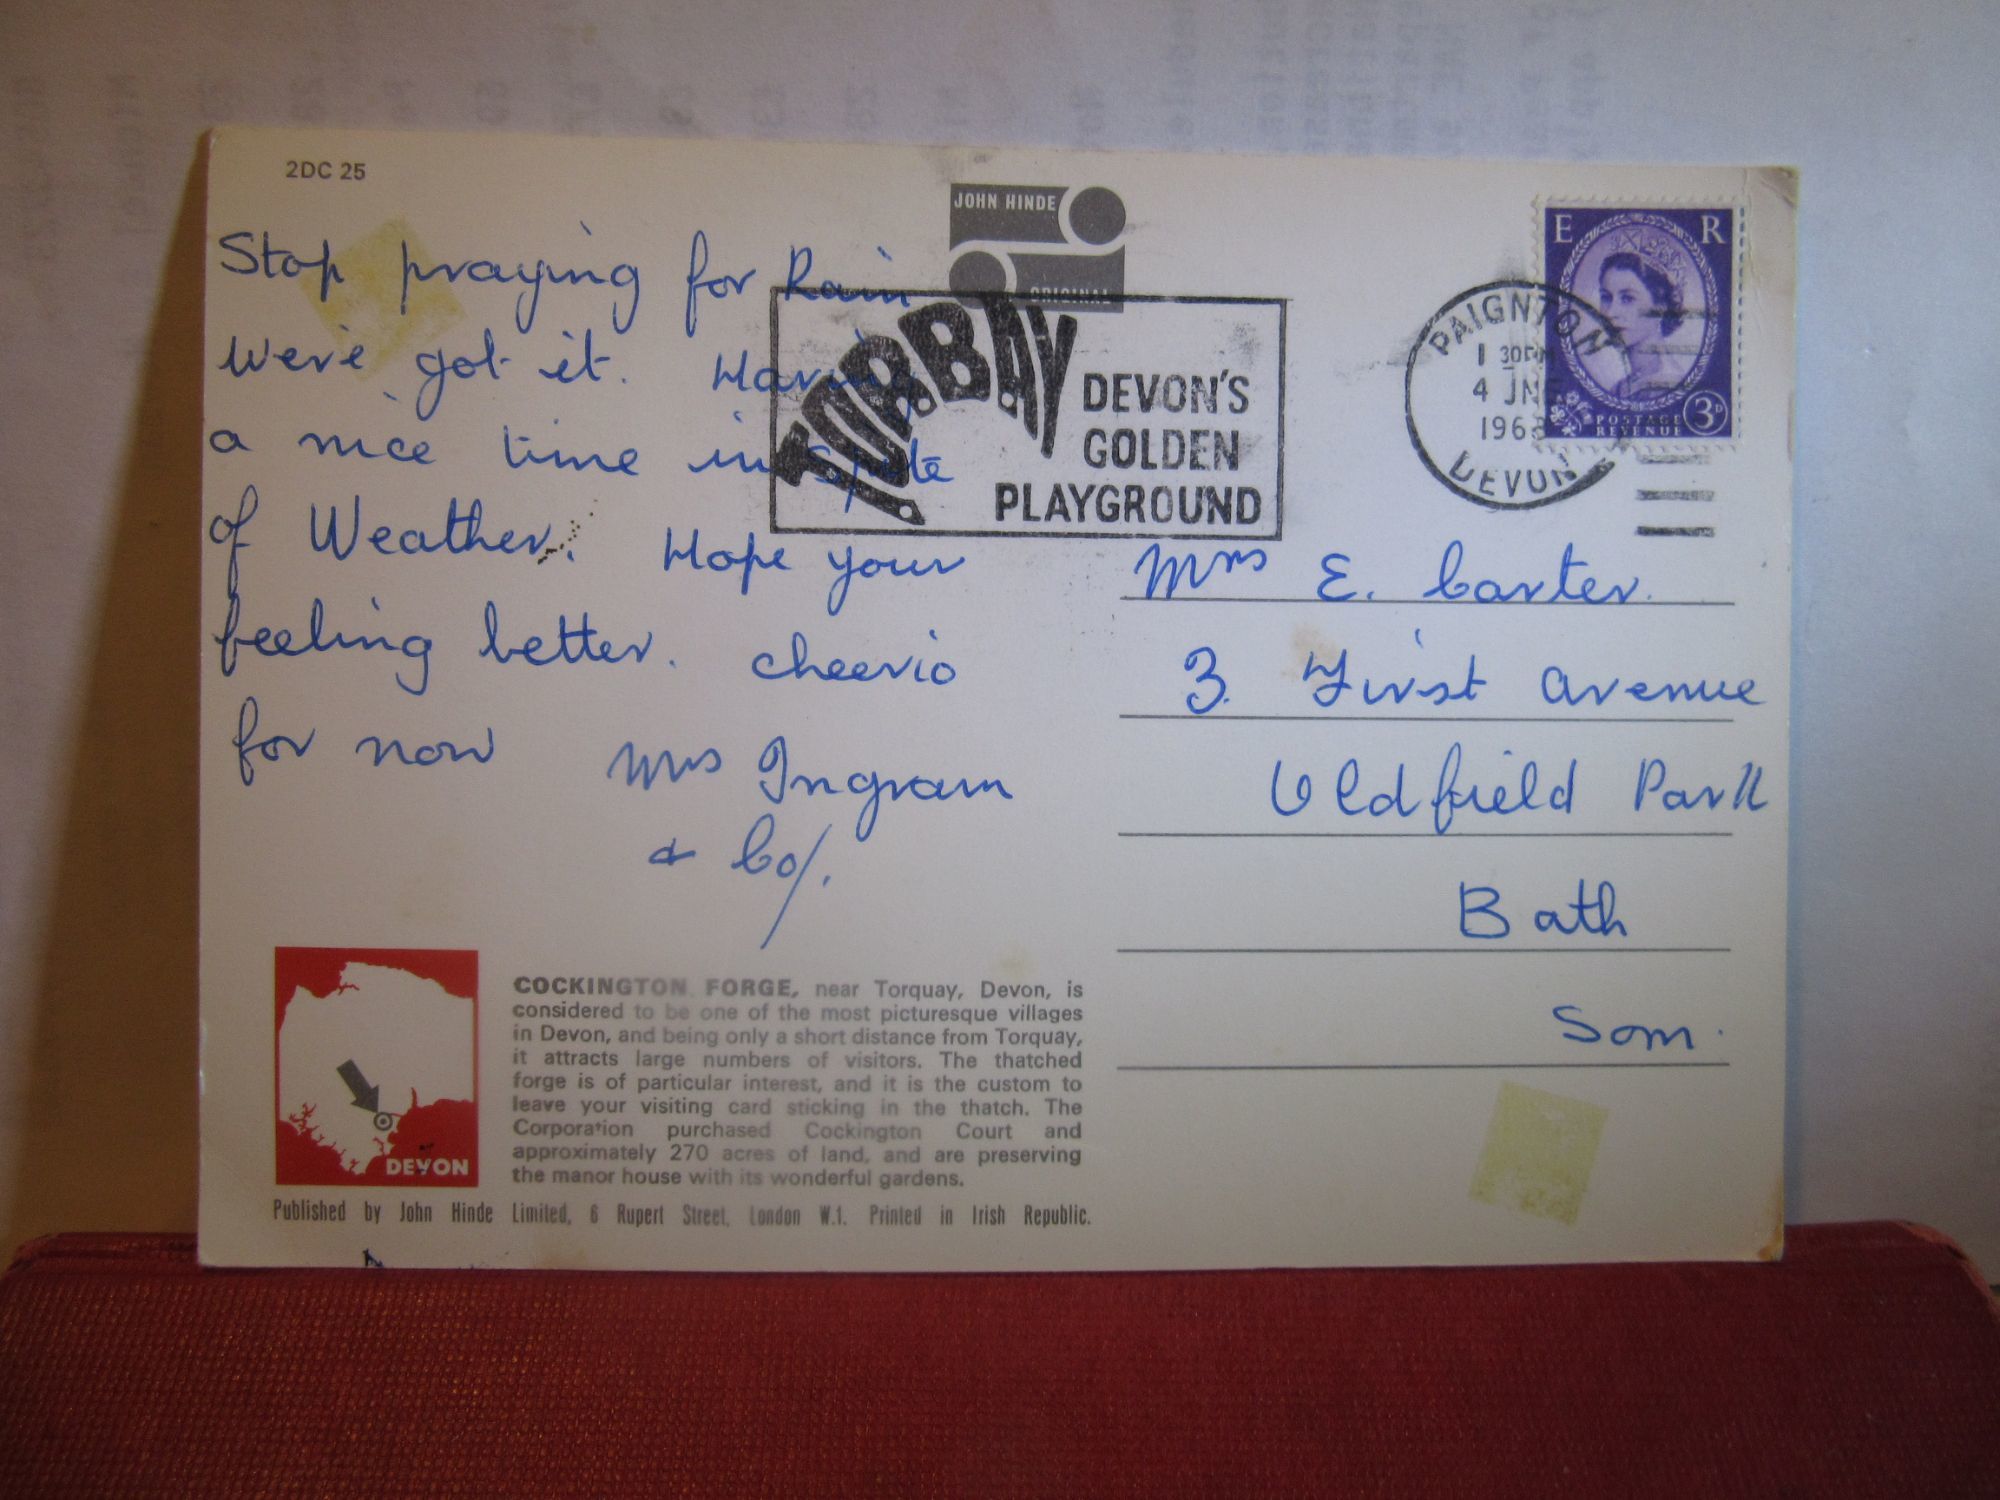 2DC 25
JOHN HINDE
ORIGINAL
Stop praying for Rain
we've got it. Having
a nice time in spite
of Weather. Hope your
feeling better. cheerio
for now Mrs Ingram
& Co/.
TORBAY
DEVON'S
GOLDEN
PLAYGROUND
PAIGNTON
1 30PM
4 JNE
1968
DEVON
E R
POSTAGE
REVENUE
3D
Mrs E. Carter.
3. First Avenue
Oldfield Park
Bath
Som.
DEVON
COCKINGTON FORGE, near Torquay, Devon, is
considered to be one of the most picturesque villages
in Devon, and being only a short distance from Torquay,
it attracts large numbers of visitors. The thatched
forge is of particular interest, and it is the custom to
leave your visiting card sticking in the thatch. The
Corporation purchased Cockington Court and
approximately 270 acres of land, and are preserving
the manor house with its wonderful gardens.
Published by John Hinde Limited, 6 Rupert Street, London W.1. Printed in Irish Republic.